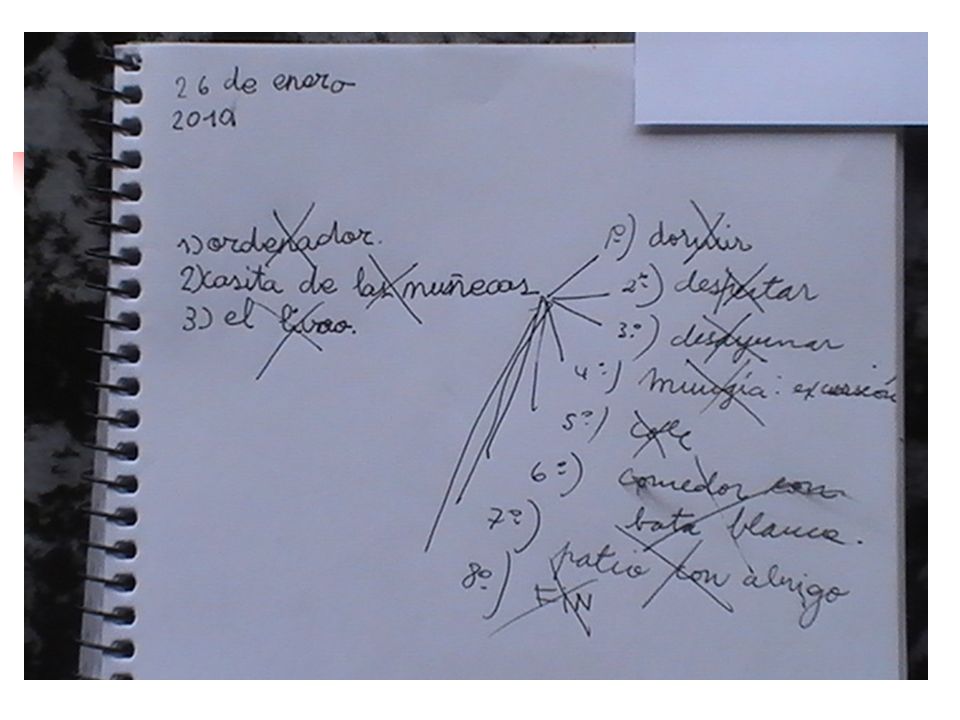 26 de enero
2010
1) ordenador.
2) casita de las muñecas
3) el libro.
1º) dormir
2º) despertar
3º) desayunar
4º) Murgia: excursión
5º) cole
6º) comedor con
7º) bata blanca.
8º) patio con abrigo
FIN